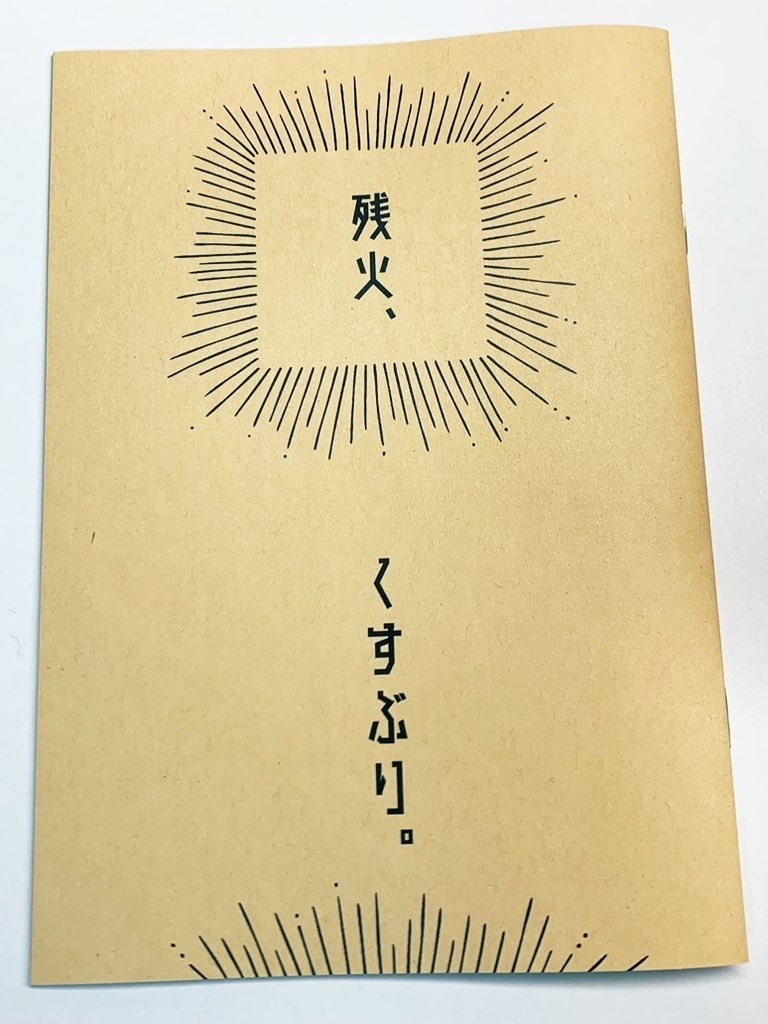 残火、
くすぶり。